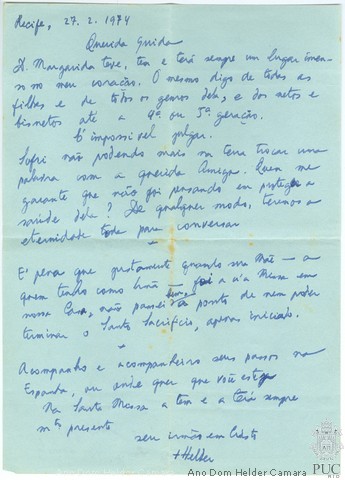 Recife, 27. 2. 1974
Querida Guida
D. Margarida teve, tem e terá sempre um lugar imen-
so no meu coração. O mesmo digo de todas as
filhas e de todos os genros dela, e dos netos e
bisnetos até a 4ª ou 5ª geração.
É impossível julgar.
Sofri não podendo mais na terra trocar uma
palavra com a querida Amiga. Quem me
garante que não foi pensando em proteger a
saúde dela? De qualquer modo, teremos a
eternidade toda para conversar
E' pena que justamente quando sua Mãe — a
quem tenho como Irmã — foi a u'a Missa em
nossa Casa, não passei a ponto de nem poder
terminar o Santo Sacrifício, apenas iniciado.
Acompanho e acompanharei seus passos na
Espanha, ou onde quer que você esteja
Na Santa Missa a tem e a terá sempre
mto presente
seu irmão em Cristo
+ Helder
Ano Dom Helder Camara
PUC
RIO